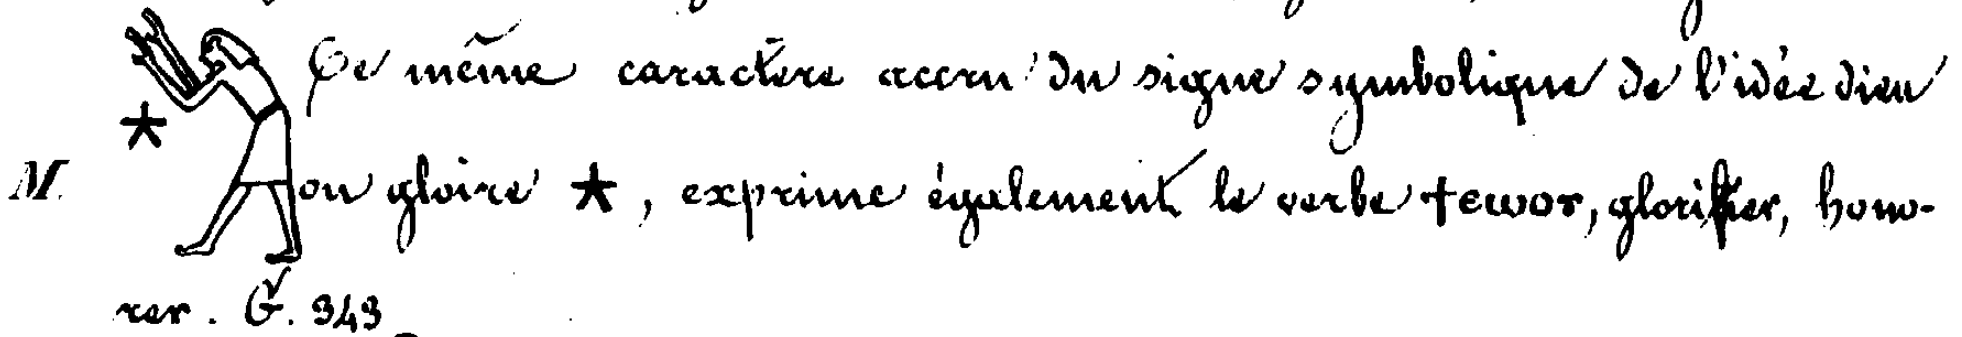 Ce même caractère accru du signe symbolique de l'idée dieu
M. ou gloire ★, exprime également le verbe ϯⲉⲱⲟⲩ, glorifier, hono-
rer. G. 343